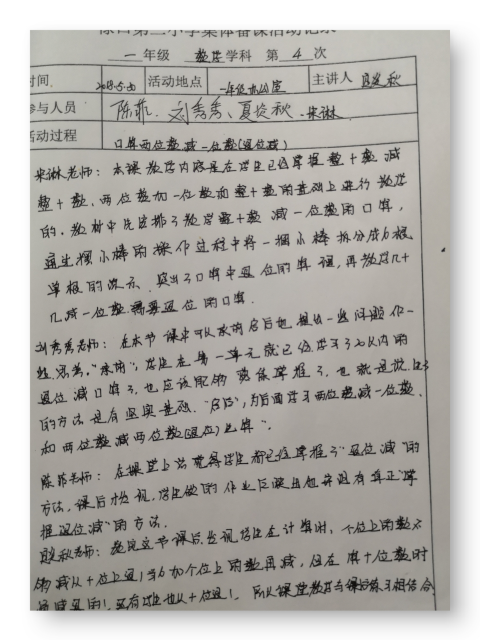 陈口第二小学集体备课活动记录
一年级 数学学科 第 4 次
时间 活动地点 一年级办公室 主讲人 秋
参与人员 陈菲、刘秀秀、夏秋、宋琳
活动过程 口算两位数减一位数(退位减)
宋琳老师：本课教学内容是在学生已经掌握整十数减
整十数、两位数加一位数和整十数的基础上进行教学
的。教材中先安排了教学整十数减一位数的口算，
通过摆小棒的操作过程中将一捆小棒拆分成10根
单根的演示，突出了口算中退位的算理，再教学几十
几减一位数需要退位的口算。
刘秀秀老师：在本节课中可以承前启后也提出一些问题作一
些思考，"承前"：学生在第一单元就已经学习了20以内的
退位减口算了，也应该能够熟练掌握了，也就是说口算
的方法是有坚实基础。"启后"，为后面学习两位数减一位数
和两位数减两位数(退位)笔算。
陈菲老师：在课堂上总觉得学生都已经掌握了"退位减"的
方法，课后发现，学生做的作业反映出他并没有真正"掌
握退位减"的方法。
秋老师：教完这节课后发现学生在计算时，个位上的数不
够减从十位上退1到加个位上的数再减，但在算十位数时
退1，还有学生也从十位退1。所以课堂教学与课后练习相结合